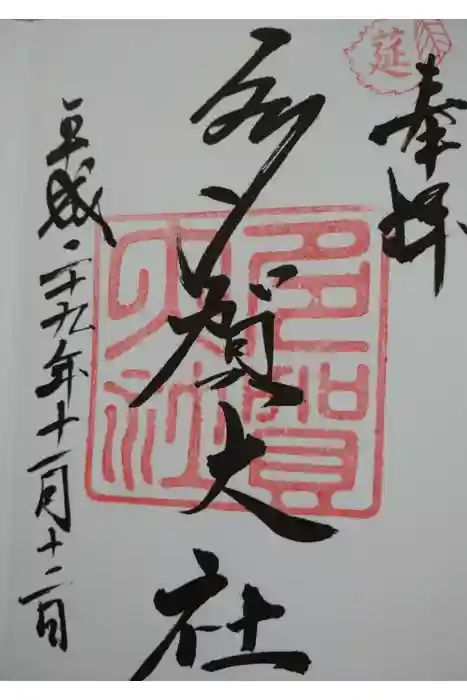 奉拝
莚
多賀大社
多賀大社
平成二十九年十一月十二日